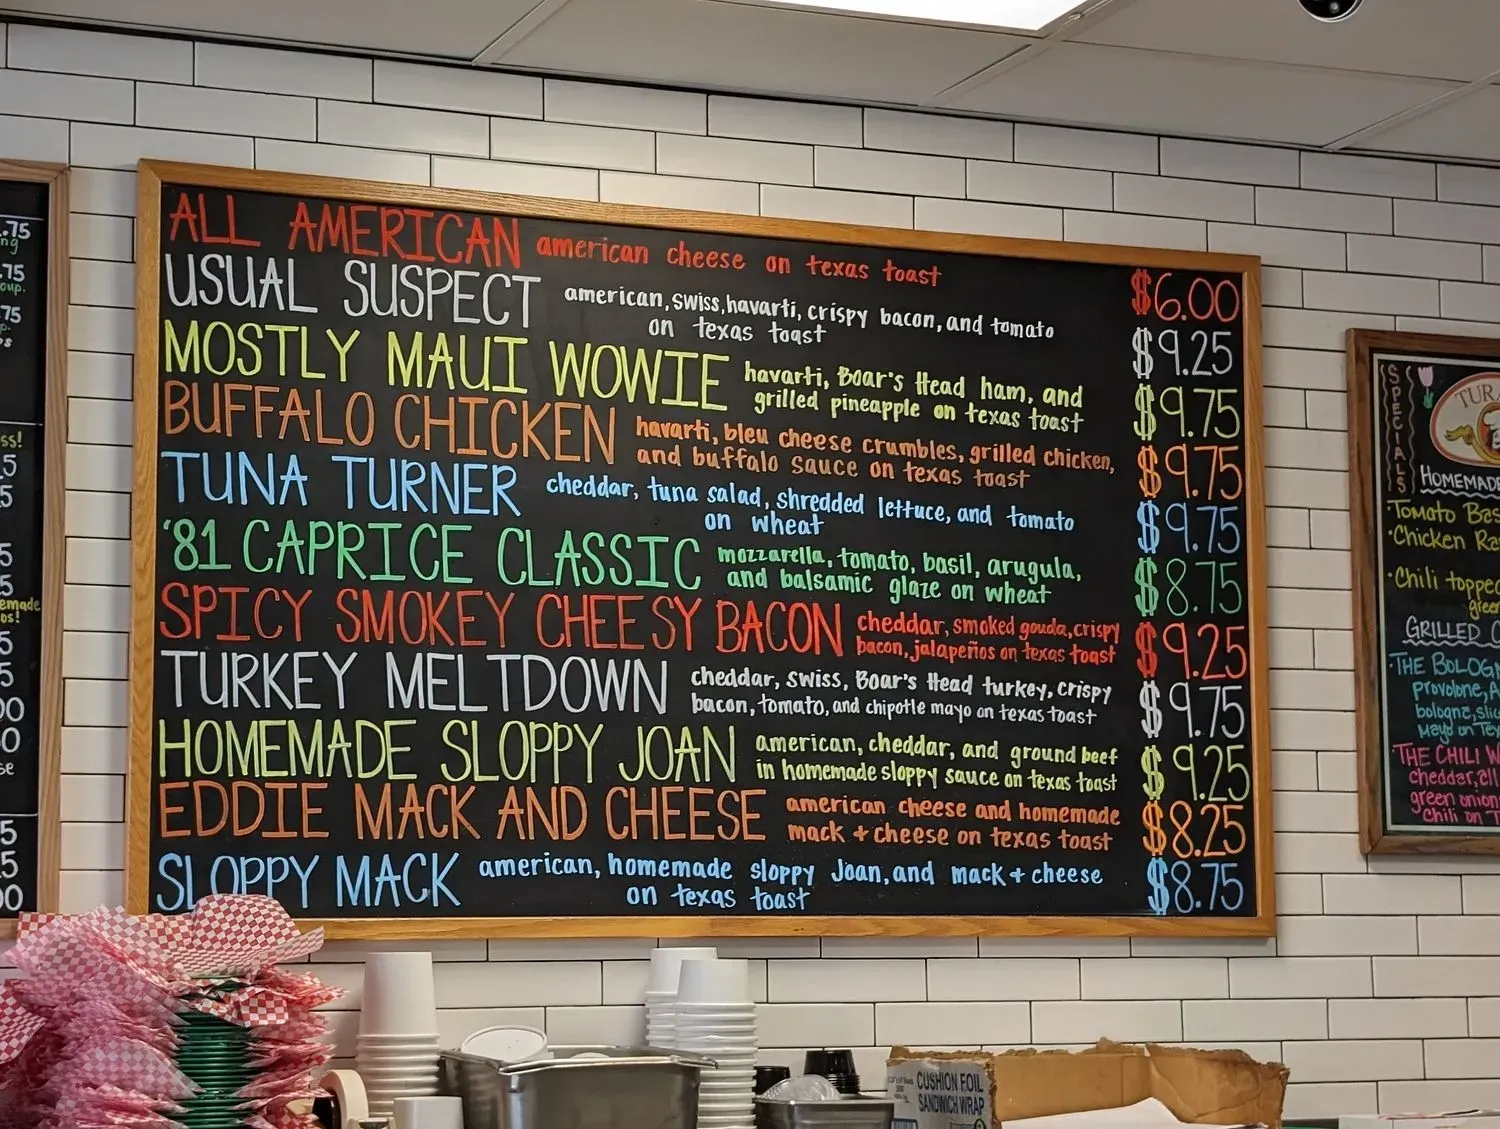 ALL AMERICAN american cheese on texas toast $6.00
USUAL SUSPECT american, swiss, havarti, crispy bacon, and tomato
on texas toast $9.25
MOSTLY MAUI WOWIE havarti, Boar's Head ham, and
grilled pineapple on texas toast $9.75
BUFFALO CHICKEN havarti, bleu cheese crumbles, grilled chicken,
and buffalo sauce on texas toast $9.75
TUNA TURNER cheddar, tuna salad, shredded lettuce, and tomato
on wheat $9.75
'81 CAPRICE CLASSIC mozzarella, tomato, basil, arugula,
and balsamic glaze on wheat $8.75
SPICY SMOKEY CHEESY BACON cheddar, smoked gouda, crispy
bacon, jalapeños on texas toast $9.25
TURKEY MELTDOWN cheddar, swiss, Boar's Head turkey, crispy
bacon, tomato, and chipotle mayo on texas toast $9.75
HOMEMADE SLOPPY JOAN american, cheddar, and ground beef
in homemade sloppy sauce on texas toast $9.25
EDDIE MACK AND CHEESE american cheese and homemade
mack + cheese on texas toast $8.25
SLOPPY MACK american, homemade sloppy Joan, and mack + cheese
on texas toast $8.75
SPECIALS
HOMEMADE
•Tomato
•Chicken
•Chili topped
GRILLED
•THE
provolone,
bologna,
mayo on
THE CHILI
cheddar,
green onion
Chili on
.75
.75
.75
CUSHION FOIL
SANDWICH WRAP